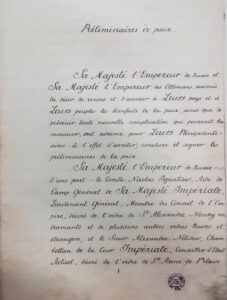 Préliminaires de paix
Sa Majesté l'Empereur de Russie et
Sa Majesté l'Empereur des Ottomans animés
du désir de rendre et d'assurer à Leurs pays et à
Leurs peuples les bienfaits de la paix ainsi que de
prévenir toute nouvelle complication qui pourrait la
menacer, ont nommé pour Leurs Plénipoten-
tiaires à l'effet d'arrêter, conclure et signer les
préliminaires de la paix
Sa Majesté l'Empereur de Russie
d'une part - le Comte Nicolas Ignatieff, Aide de
Camp Général de Sa Majesté Impériale,
Lieutenant Général, Membre du Conseil de l'Em-
pire, décoré de l'ordre de St Alexandre Nevsky en
diamants et de plusieurs autres ordres Russes et
étrangers, et le Sieur Alexandre Nélidow, Cham-
bellan de la Cour Impériale, Conseiller d'État
Actuel, décoré de l'ordre de Ste Anne de 1re classe